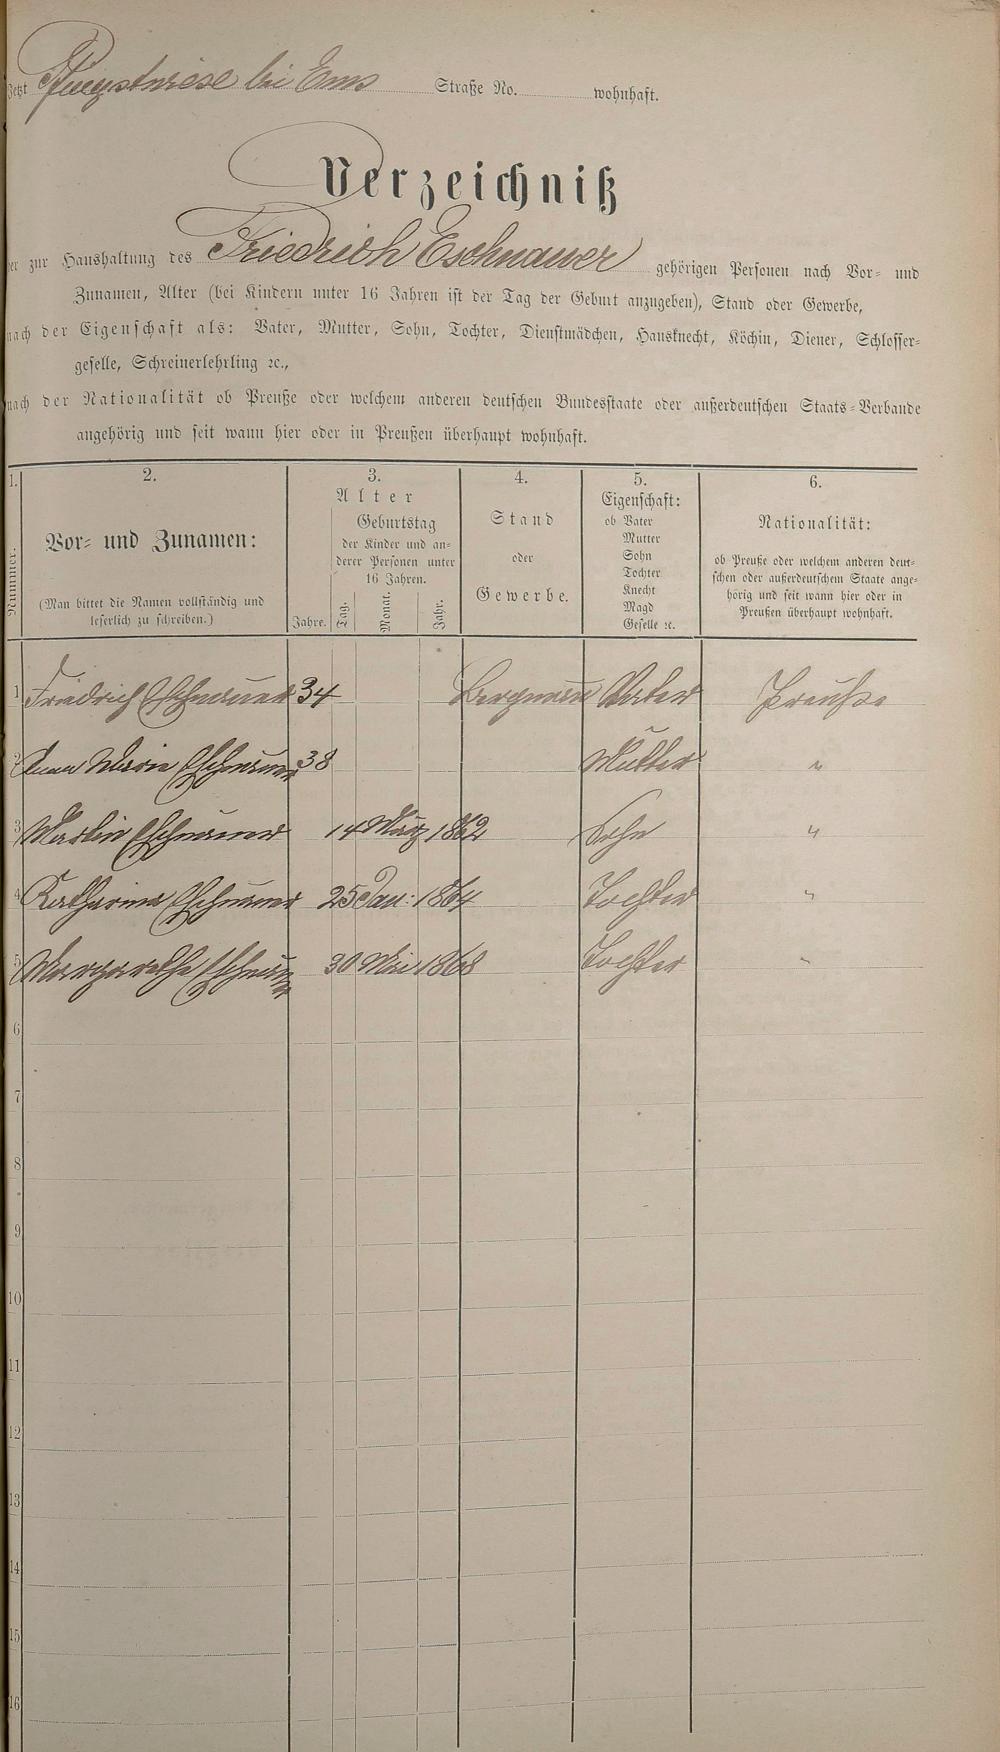 Jetzt Pfingstwiese bei Ems Straße No. wohnhaft.
Verzeichniß
der zur Haushaltung des Friedrich Eschnauer gehörigen Personen nach Vor- und
Zunamen, Alter (bei Kindern unter 16 Jahren ist der Tag der Geburt anzugeben), Stand oder Gewerbe,
nach der Eigenschaft als: Vater, Mutter, Sohn, Tochter, Dienstmädchen, Hausknecht, Köchin, Diener, Schlosser-
geselle, Schreinerlehrling ꝛc.,
nach der Nationalität ob Preuße oder welchem anderen deutschen Bundesstaate oder außerdeutschen Staats-Verbande
angehörig und seit wann hier oder in Preußen überhaupt wohnhaft.
1. 2. 3. 4. 5. 6.
Nummer.
Vor- und Zunamen:
(Man bittet die Namen vollständig und
leserlich zu schreiben.)
Alter
Jahre.
Geburtstag
der Kinder und an-
derer Personen unter
16 Jahren.
Tag. Monat. Jahr.
Stand
oder
Gewerbe.
Eigenschaft:
ob Vater
Mutter
Sohn
Tochter
Knecht
Magd
Geselle ꝛc.
Nationalität:
ob Preuße oder welchem anderen deut-
schen oder außerdeutschem Staate ange-
hörig und seit wann hier oder in
Preußen überhaupt wohnhaft.
1 Friedrich Eschnauer 34 Bergmann Vater Preuße
2 Anna Maria Eschnauer 38 Mutter "
3 Martin Eschnauer 14 März 1862 Sohn "
4 Katharina Eschnauer 25 Jan: 1864 Tochter "
5 Margarethe Eschnauer 30 Mai 1868 Tochter "
6
7
8
9
10
11
12
13
14
15
16